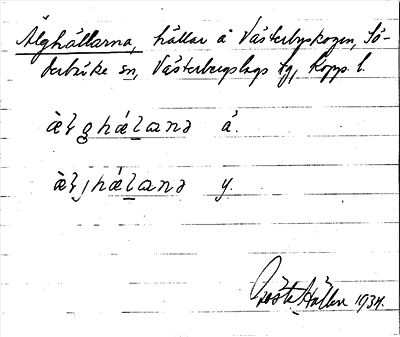 Älghällarna, hällar å Västerbyskogen, Sö-
derbärke sn, Västerbergslags tg, Kopp. l.
àlghǽlanə ä.
àljhǽlanə y.
Gösta Hallen 1934.